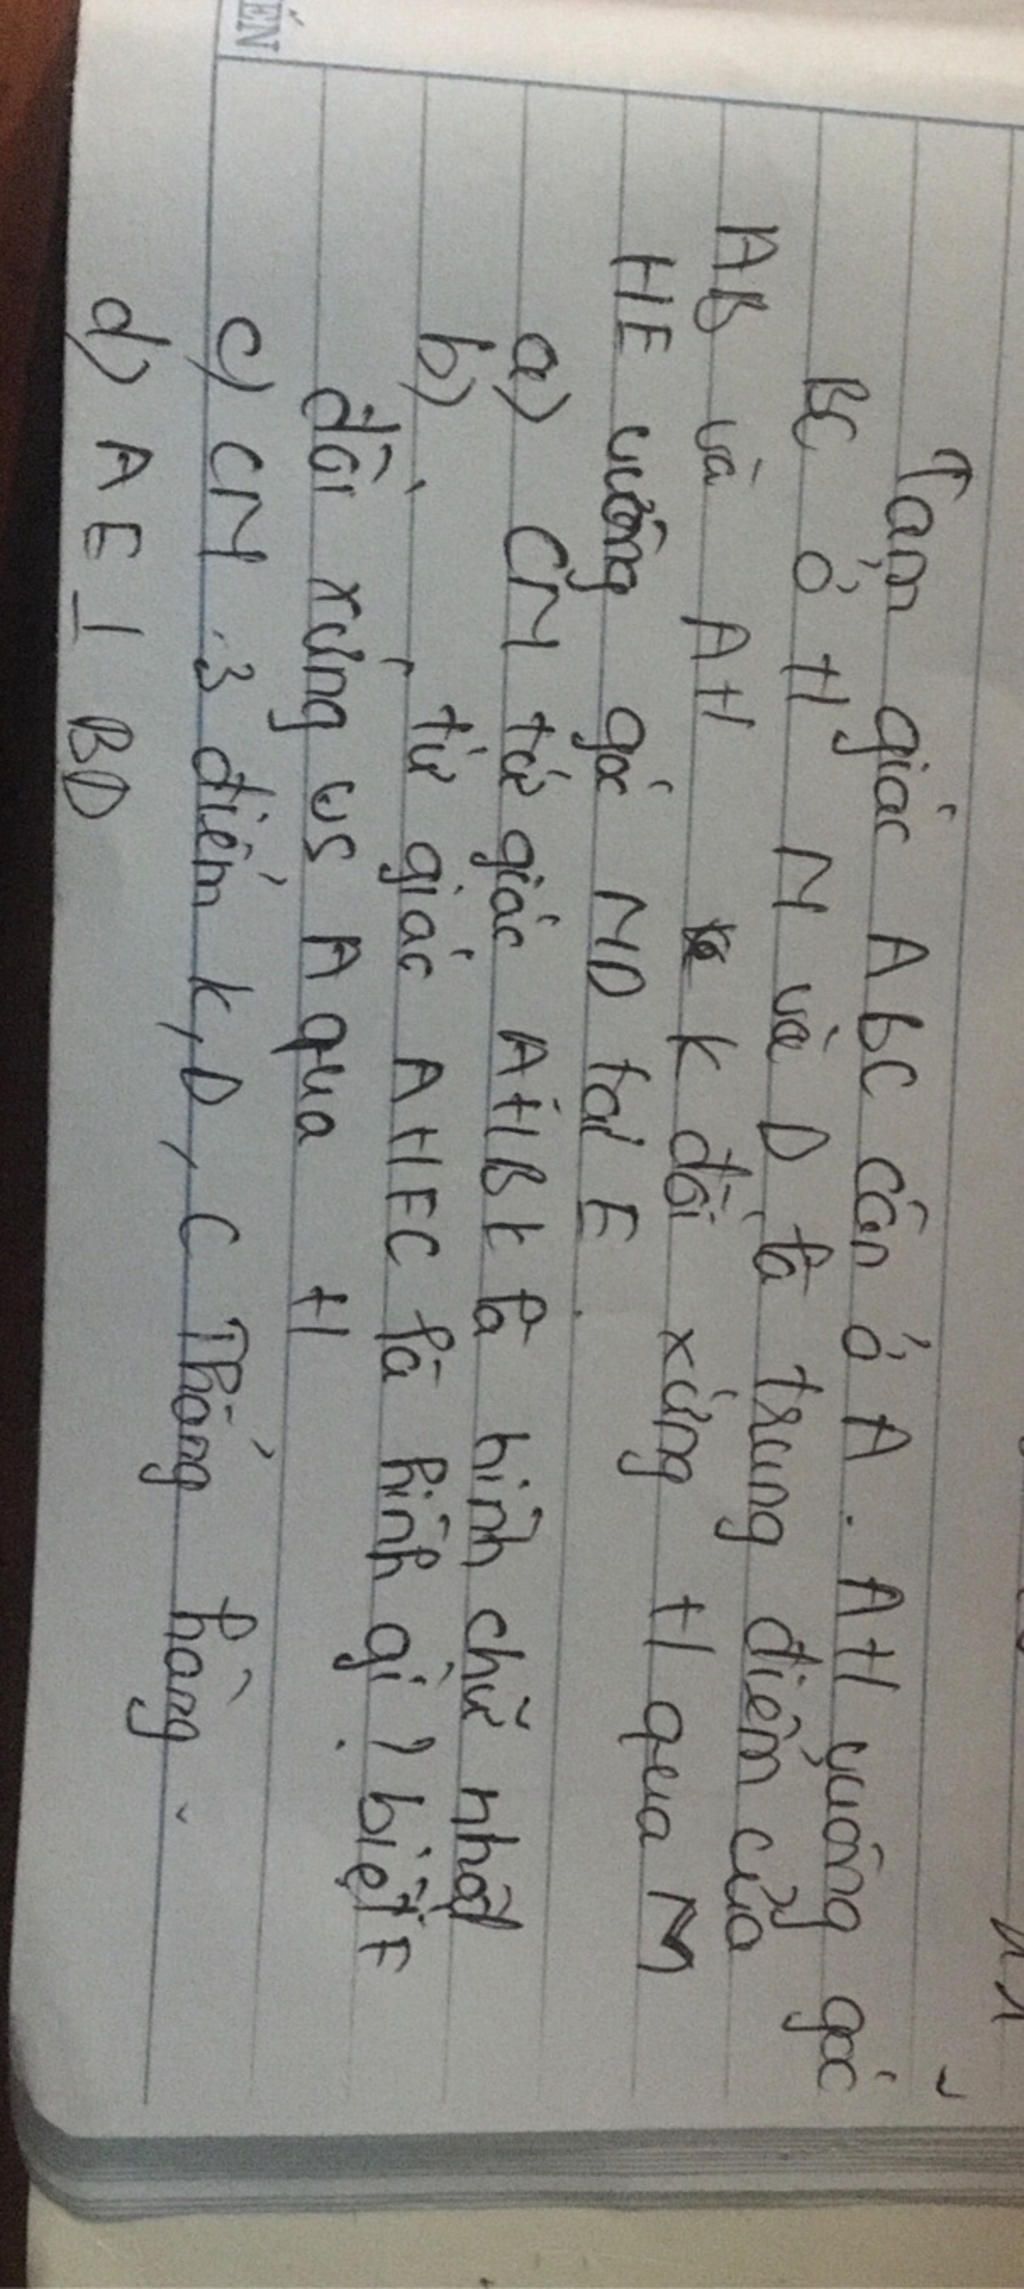 Tam giác ABC cân ở A. AH vuông góc
BC ở H M và D là trung điểm của
AB và AH K đối xứng H qua M
HE vuông góc MD tại E.
a) CM tứ giác AHBK là hình chữ nhật
b) tứ giác AHFC là hình gì? biết F
đối xứng vs A qua H
c) CM 3 điểm K, D, C Thẳng hàng.
d) AE ⊥ BD
ẾN